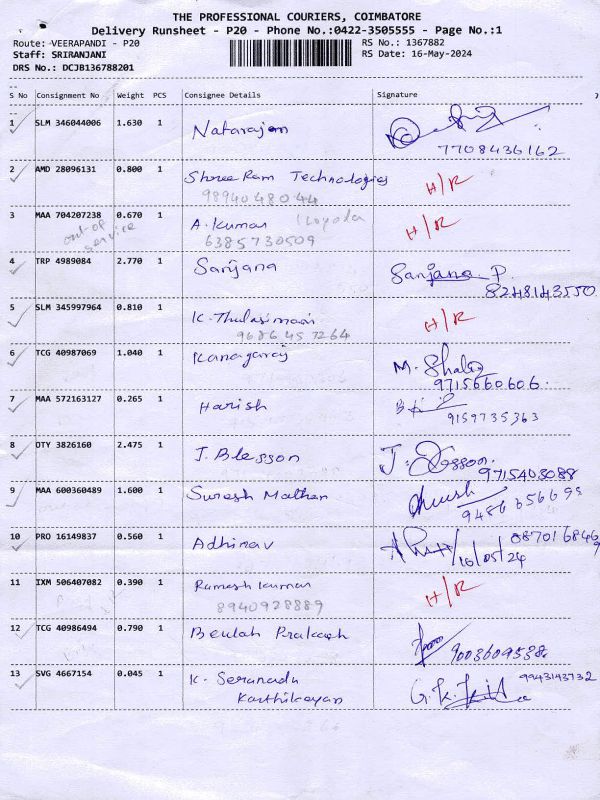 THE PROFESSIONAL COURIERS, COIMBATORE
Delivery Runsheet - P20 - Phone No.:0422-3505555 - Page No.:1
Route: VEERAPANDI - P20 RS No.: 1367882
Staff: SRIRANJANI RS Date: 16-May-2024
DRS No.: DCJB136788201
S No Consignment No Weight PCS Consignee Details Signature
1 SLM 346044006 1.630 1 Natarajan
7708436162
2 AMD 28096131 0.800 1 Shree Ram Technologies H/R
9894048044
3 MAA 704207238 0.670 1 A. Kumar H/R
out of service 6385730509
4 TRP 4989084 2.770 1 Sanjana Sanjana P.
8248143550
5 SLM 345997964 0.810 1 K. Thulasimani H/R
9686457264
6 TCG 40987069 1.040 1 Kanagaraj M.
9715660606
7 MAA 572163127 0.265 1 Harish
9159735363
8 OTY 3826160 2.475 1 J. Blesson J. Blesson.
9715403088
9 MAA 600360489 1.600 1 Suresh Mathan
10 PRO 16149837 0.560 1 Adhinav
16/05/24
11 IXM 506407082 0.390 1 Ramesh kumar H/R
8940928889
12 TCG 40986494 0.790 1 Beulah Prakash
13 SVG 4667154 0.045 1 K. 9943143732
Karthikeyan